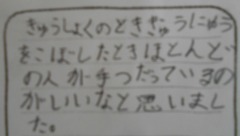 きゅうしょくのときぎゅうにゅう
をこぼしたときほとんど
の人が手つだっているの
がいいなと思いまし
た。